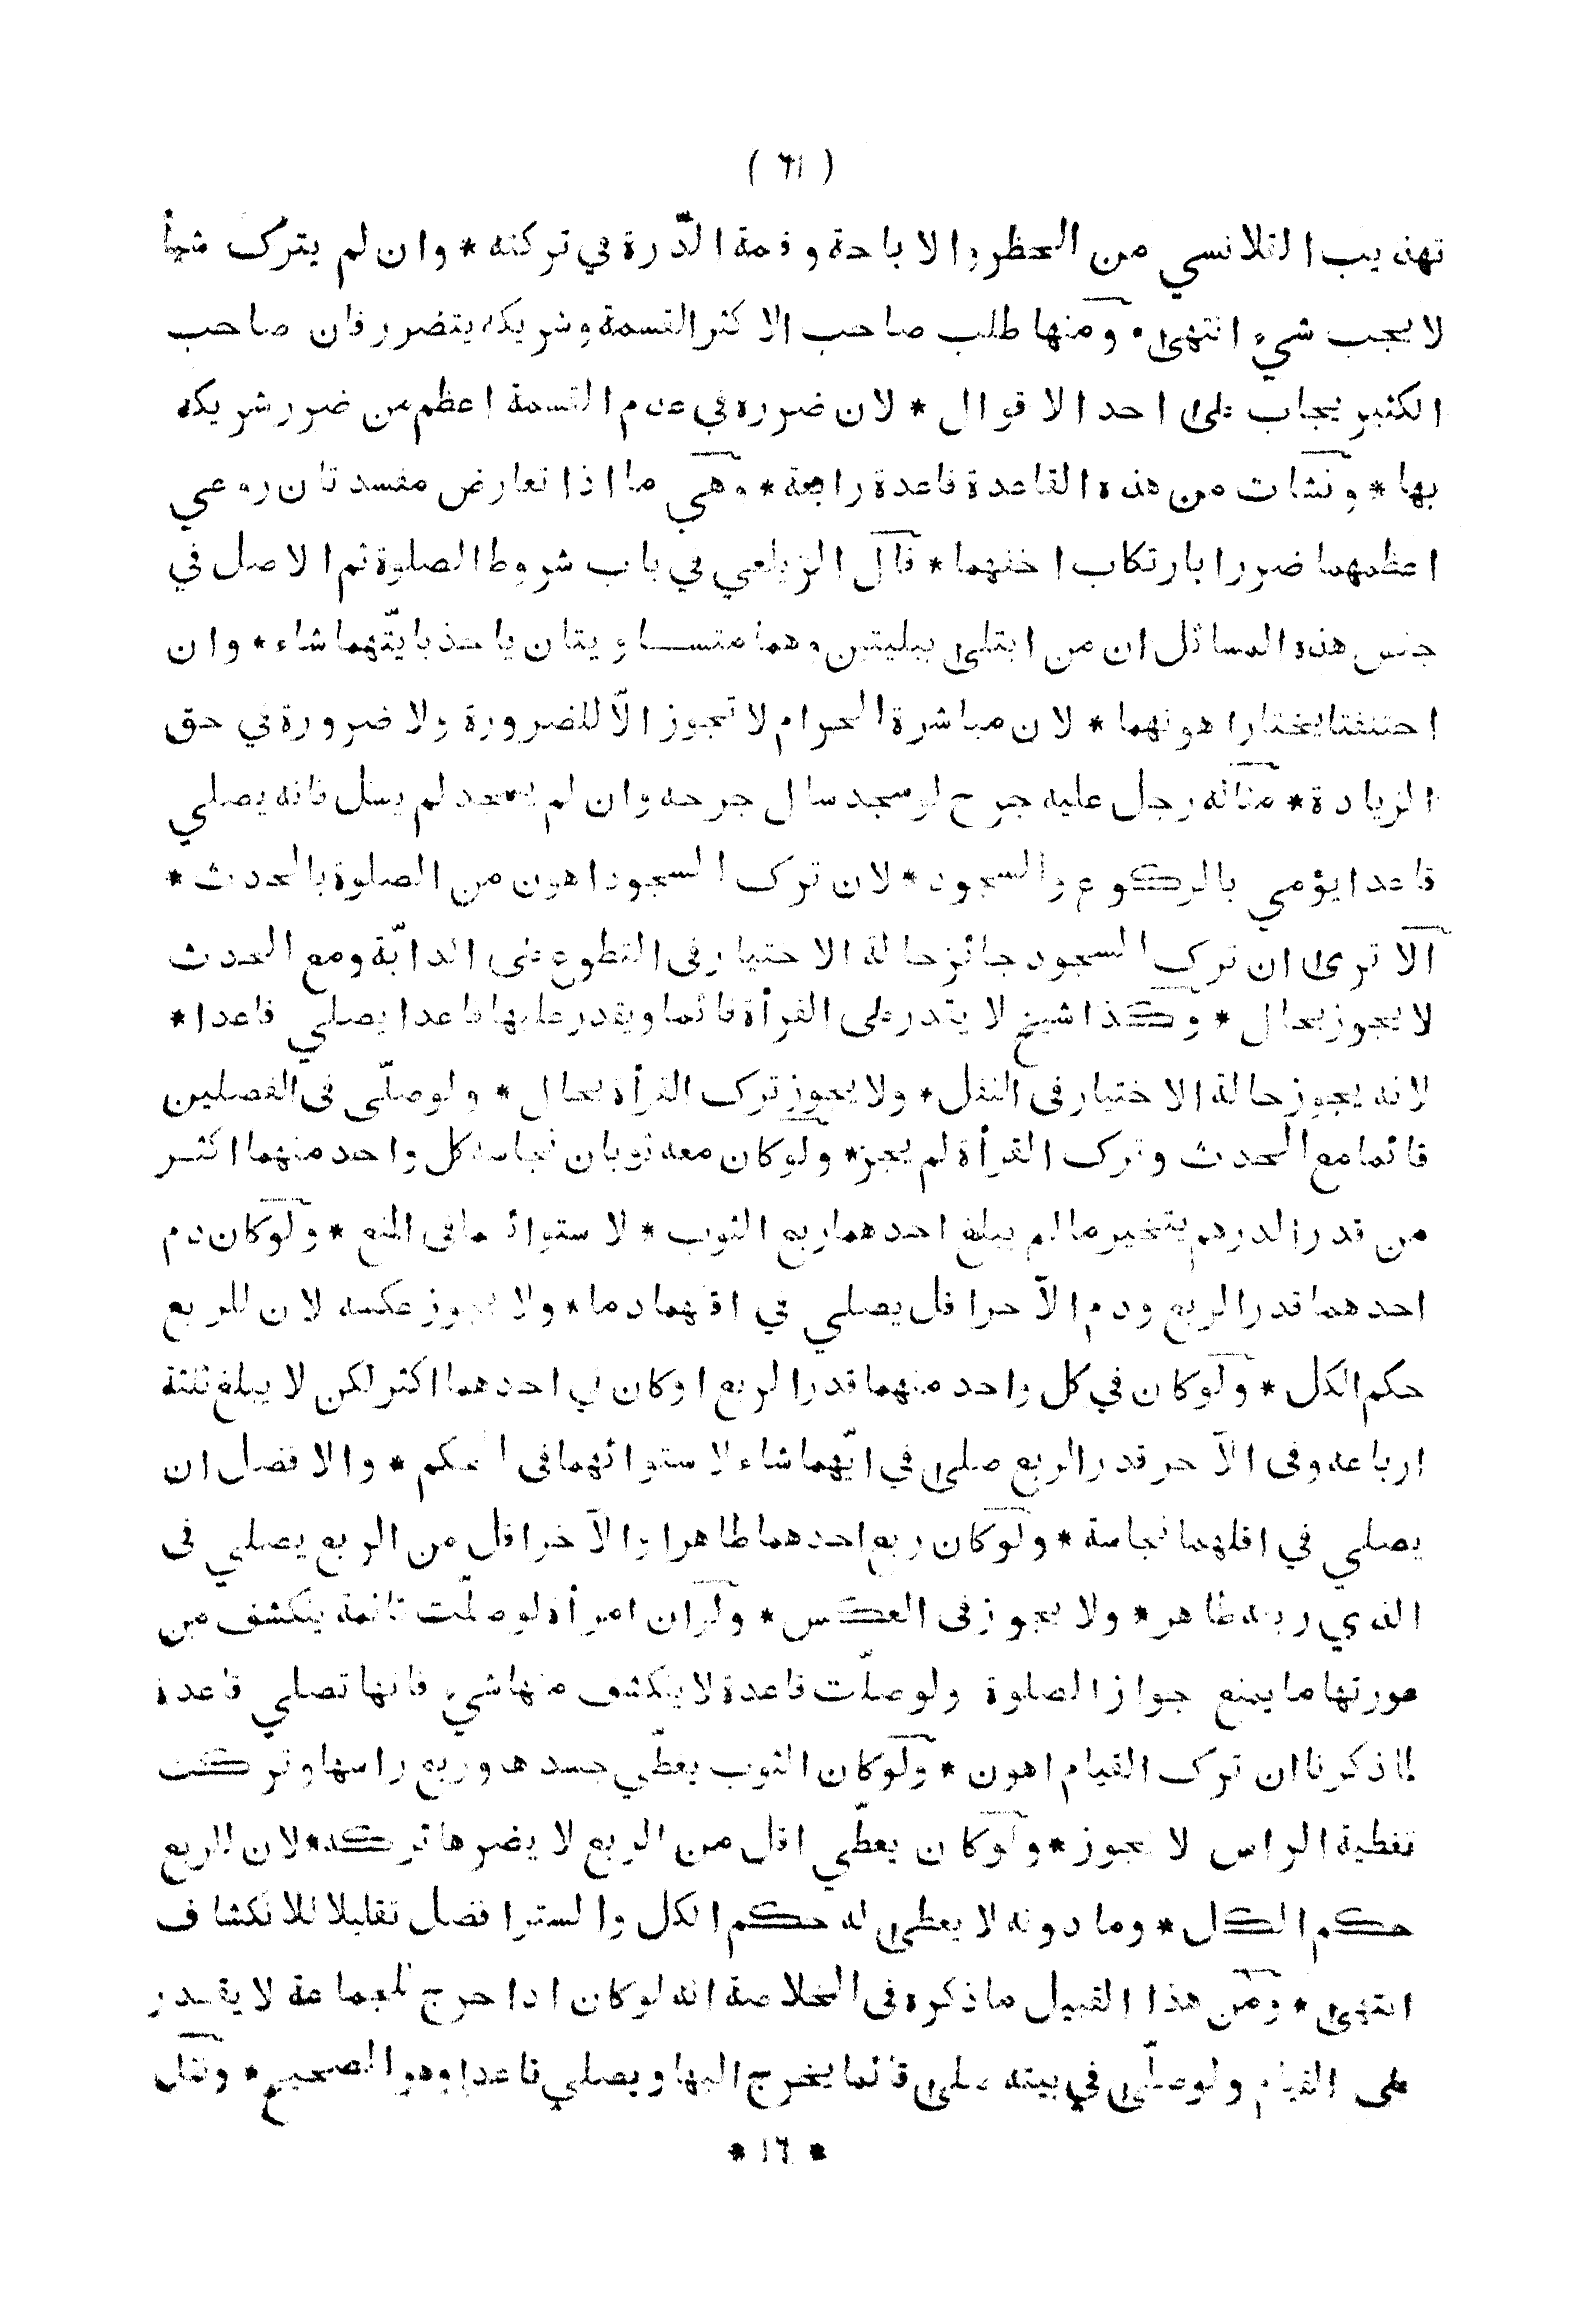 ( ٦١ )
تهذيب القلانسي من الحظر والاباحة وقمة الدّرة في تركته * وان لم يترك شيأ
لا يجب شيء انتهى * ومنها طلب صاحب الاكثر القسمة وشريكه يتضرر فان صاحب
الكثير يجاب على احد الاقوال * لان ضرره في عدم القسمة اعظم من ضرر شريكه
بها * ونشات من هذه القاعدة قاعدة رابعة * وهي ما اذا تعارض مفسدتان روعي
اعظمهما ضررا بارتكاب اخفهما * قال الزيلعي في باب شروط الصلوة ثم الاصل في
جنس هذه المسائل ان من ابتلى ببليتين وهما متساويتان ياخذ بايّتهما شاء * وان
اختلفتا يختار اهونهما * لان مباشرة الحرام لا تجوز الّا للضرورة ولا ضرورة في حق
الزيادة * مثاله رجل عليه جرح لو سجد سال جرحه وان لم يسجد لم يسل فانه يصلي
قاعدا يؤمي بالركوع والسجود * لان ترك السجود اهون من الصلوة بالحدث *
الا ترى ان ترك السجود جائز حالة الاختيار فى التطوع على الدابّة ومع الحدث
لا يجوز بحال * وكذا شيخ لا يقدر على القرأة قائما ويقدر عليها قاعدا يصلي قاعدا *
لانه يجوز حالة الاختيار فى النفل * ولا يجوز ترك القرأة بحال * ولو صلّى فى الفصلين
قائما مع الحدث وترك القرأة لم يجز * ولو كان معه ثوبان نجاسة كل واحد منهما اكثر
من قدر الدرهم يتخير ما لم يبلغ احدهما ربع الثوب * لاستوائهما فى المنع * ولو كان دم
احدهما قدر الربع ودم الآخر اقل يصلي في اقلهما دما * ولا يجوز عكسه لان للربع
حكم الكل * ولو كان في كل واحد منهما قدر الربع او كان في احدهما اكثر لكن لا يبلغ ثلثة
ارباعه وفى الآخر قدر الربع صلى في ايّهما شاء لاستوائهما فى الحكم * والافضل ان
يصلي في اقلهما نجاسة * ولو كان ربع احدهما طاهرا والآخر اقل من الربع يصلي فى
الذي ربعه طاهر * ولا يجوز فى العكس * ولو ان امرأة لو صلّت قائمة ينكشف من
عورتها ما يمنع جواز الصلوة ولو صلّت قاعدة لا ينكشف منها شيء فانها تصلي قاعدة
لما ذكرنا ان ترك القيام اهون * ولو كان الثوب يغطّي جسدها وربع راسها وتركت
تغطية الراس لا يجوز * ولو كان يغطّي اقل من الربع لا يضرها تركه * لان للربع
حكم الكل * وما دونه لا يعطى له حكم الكل والستر افضل تقليلا للانكشاف
انتهى * ومن هذا القبيل ما ذكره فى الخلاصة انه لو كان اذا خرج للجماعة لا يقدر
على القيام ولو صلّى في بيته صلى قائما يخرج اليها ويصلي قاعدا وهو الصحيح * ونقل
* ١٦ *